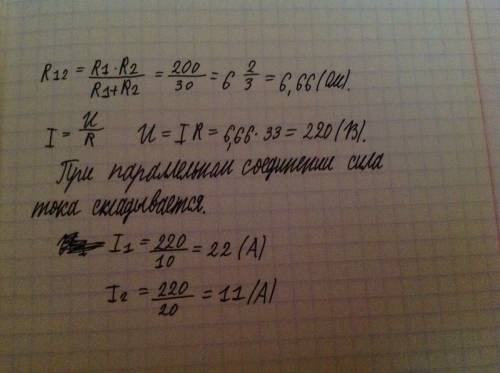 R12 = R1 · R2 / R1+R2 = 200 / 30 = 6 2/3 = 6,66 (Ом).
I = U / R   U = I R = 6,66 · 33 = 220 (В).
При параллельном соединении сила
тока складывается.
I1 = 220 / 10 = 22 (А)
I2 = 220 / 20 = 11 (А)